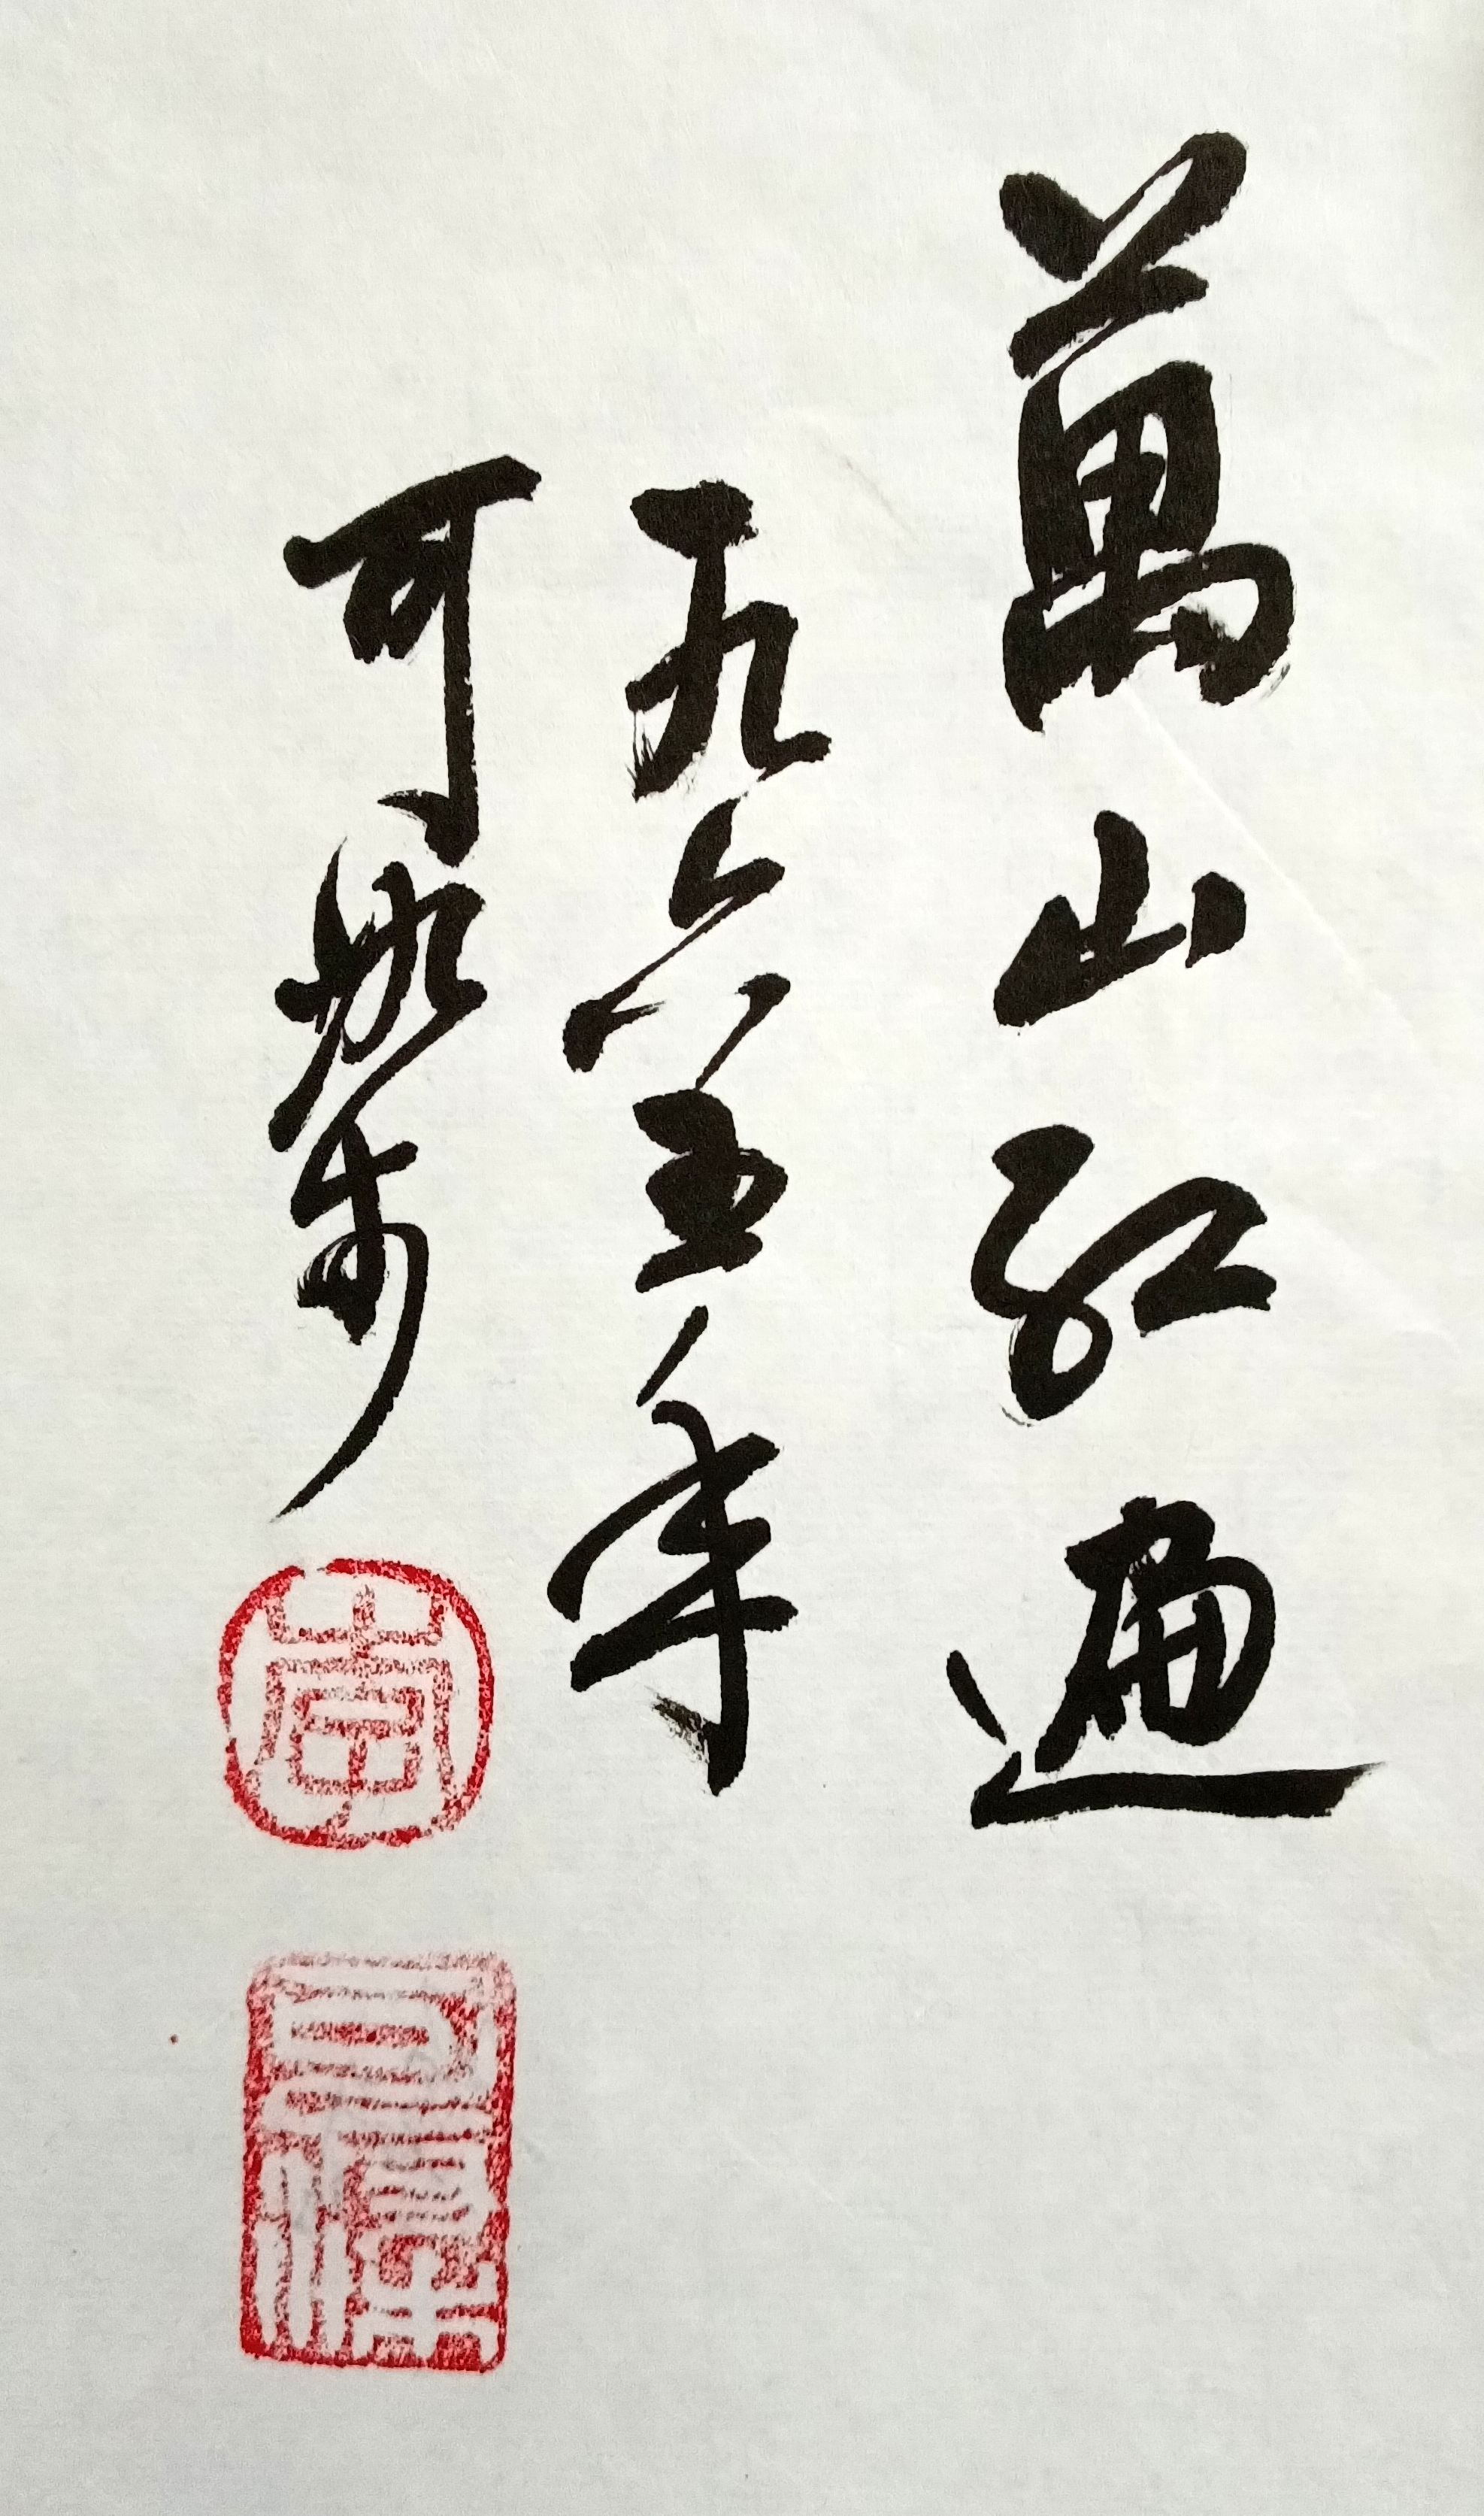 萬山紅遍
一九六五年
可